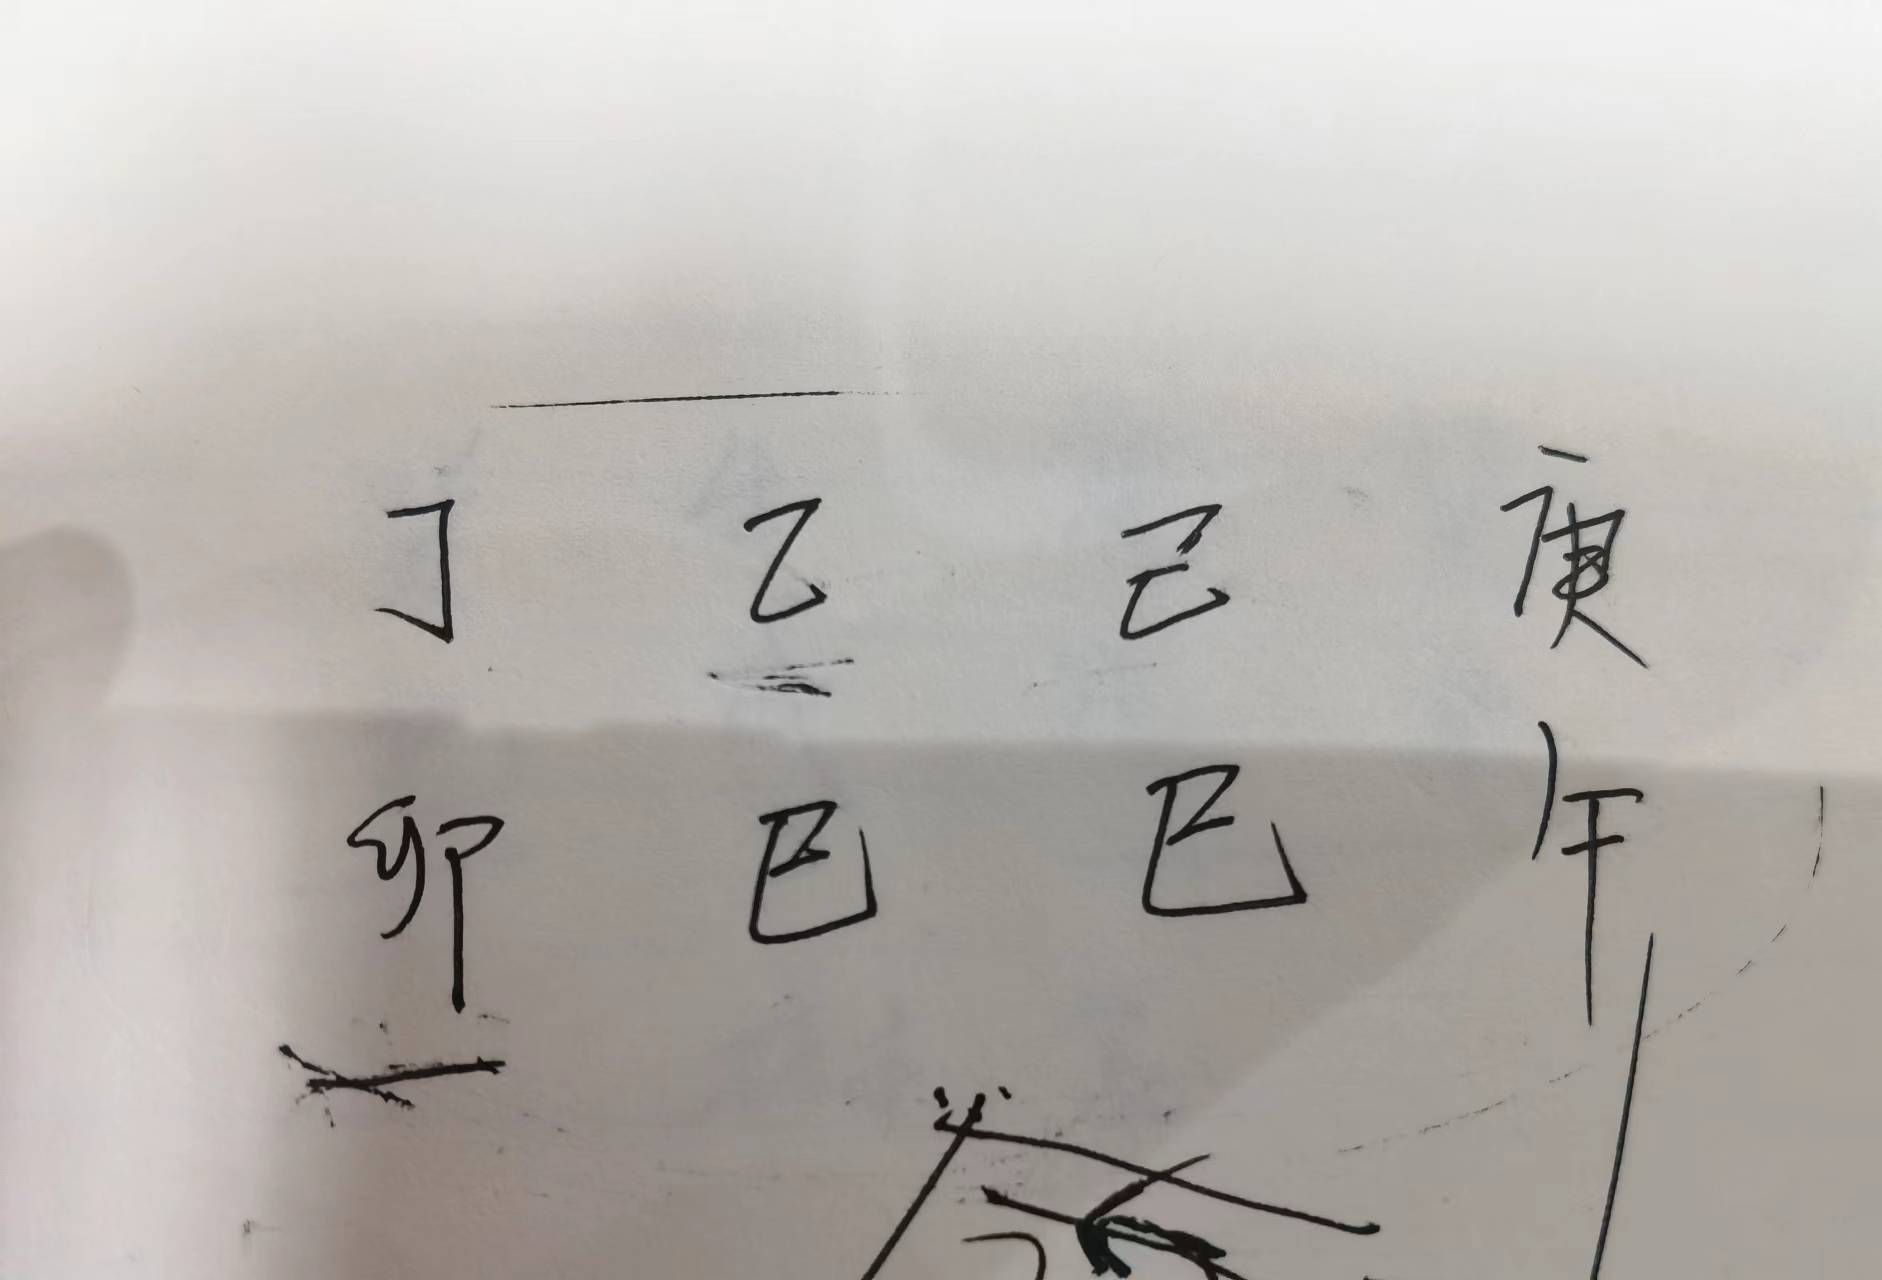 丁 乙 己 庚
卯 巳 巳 午